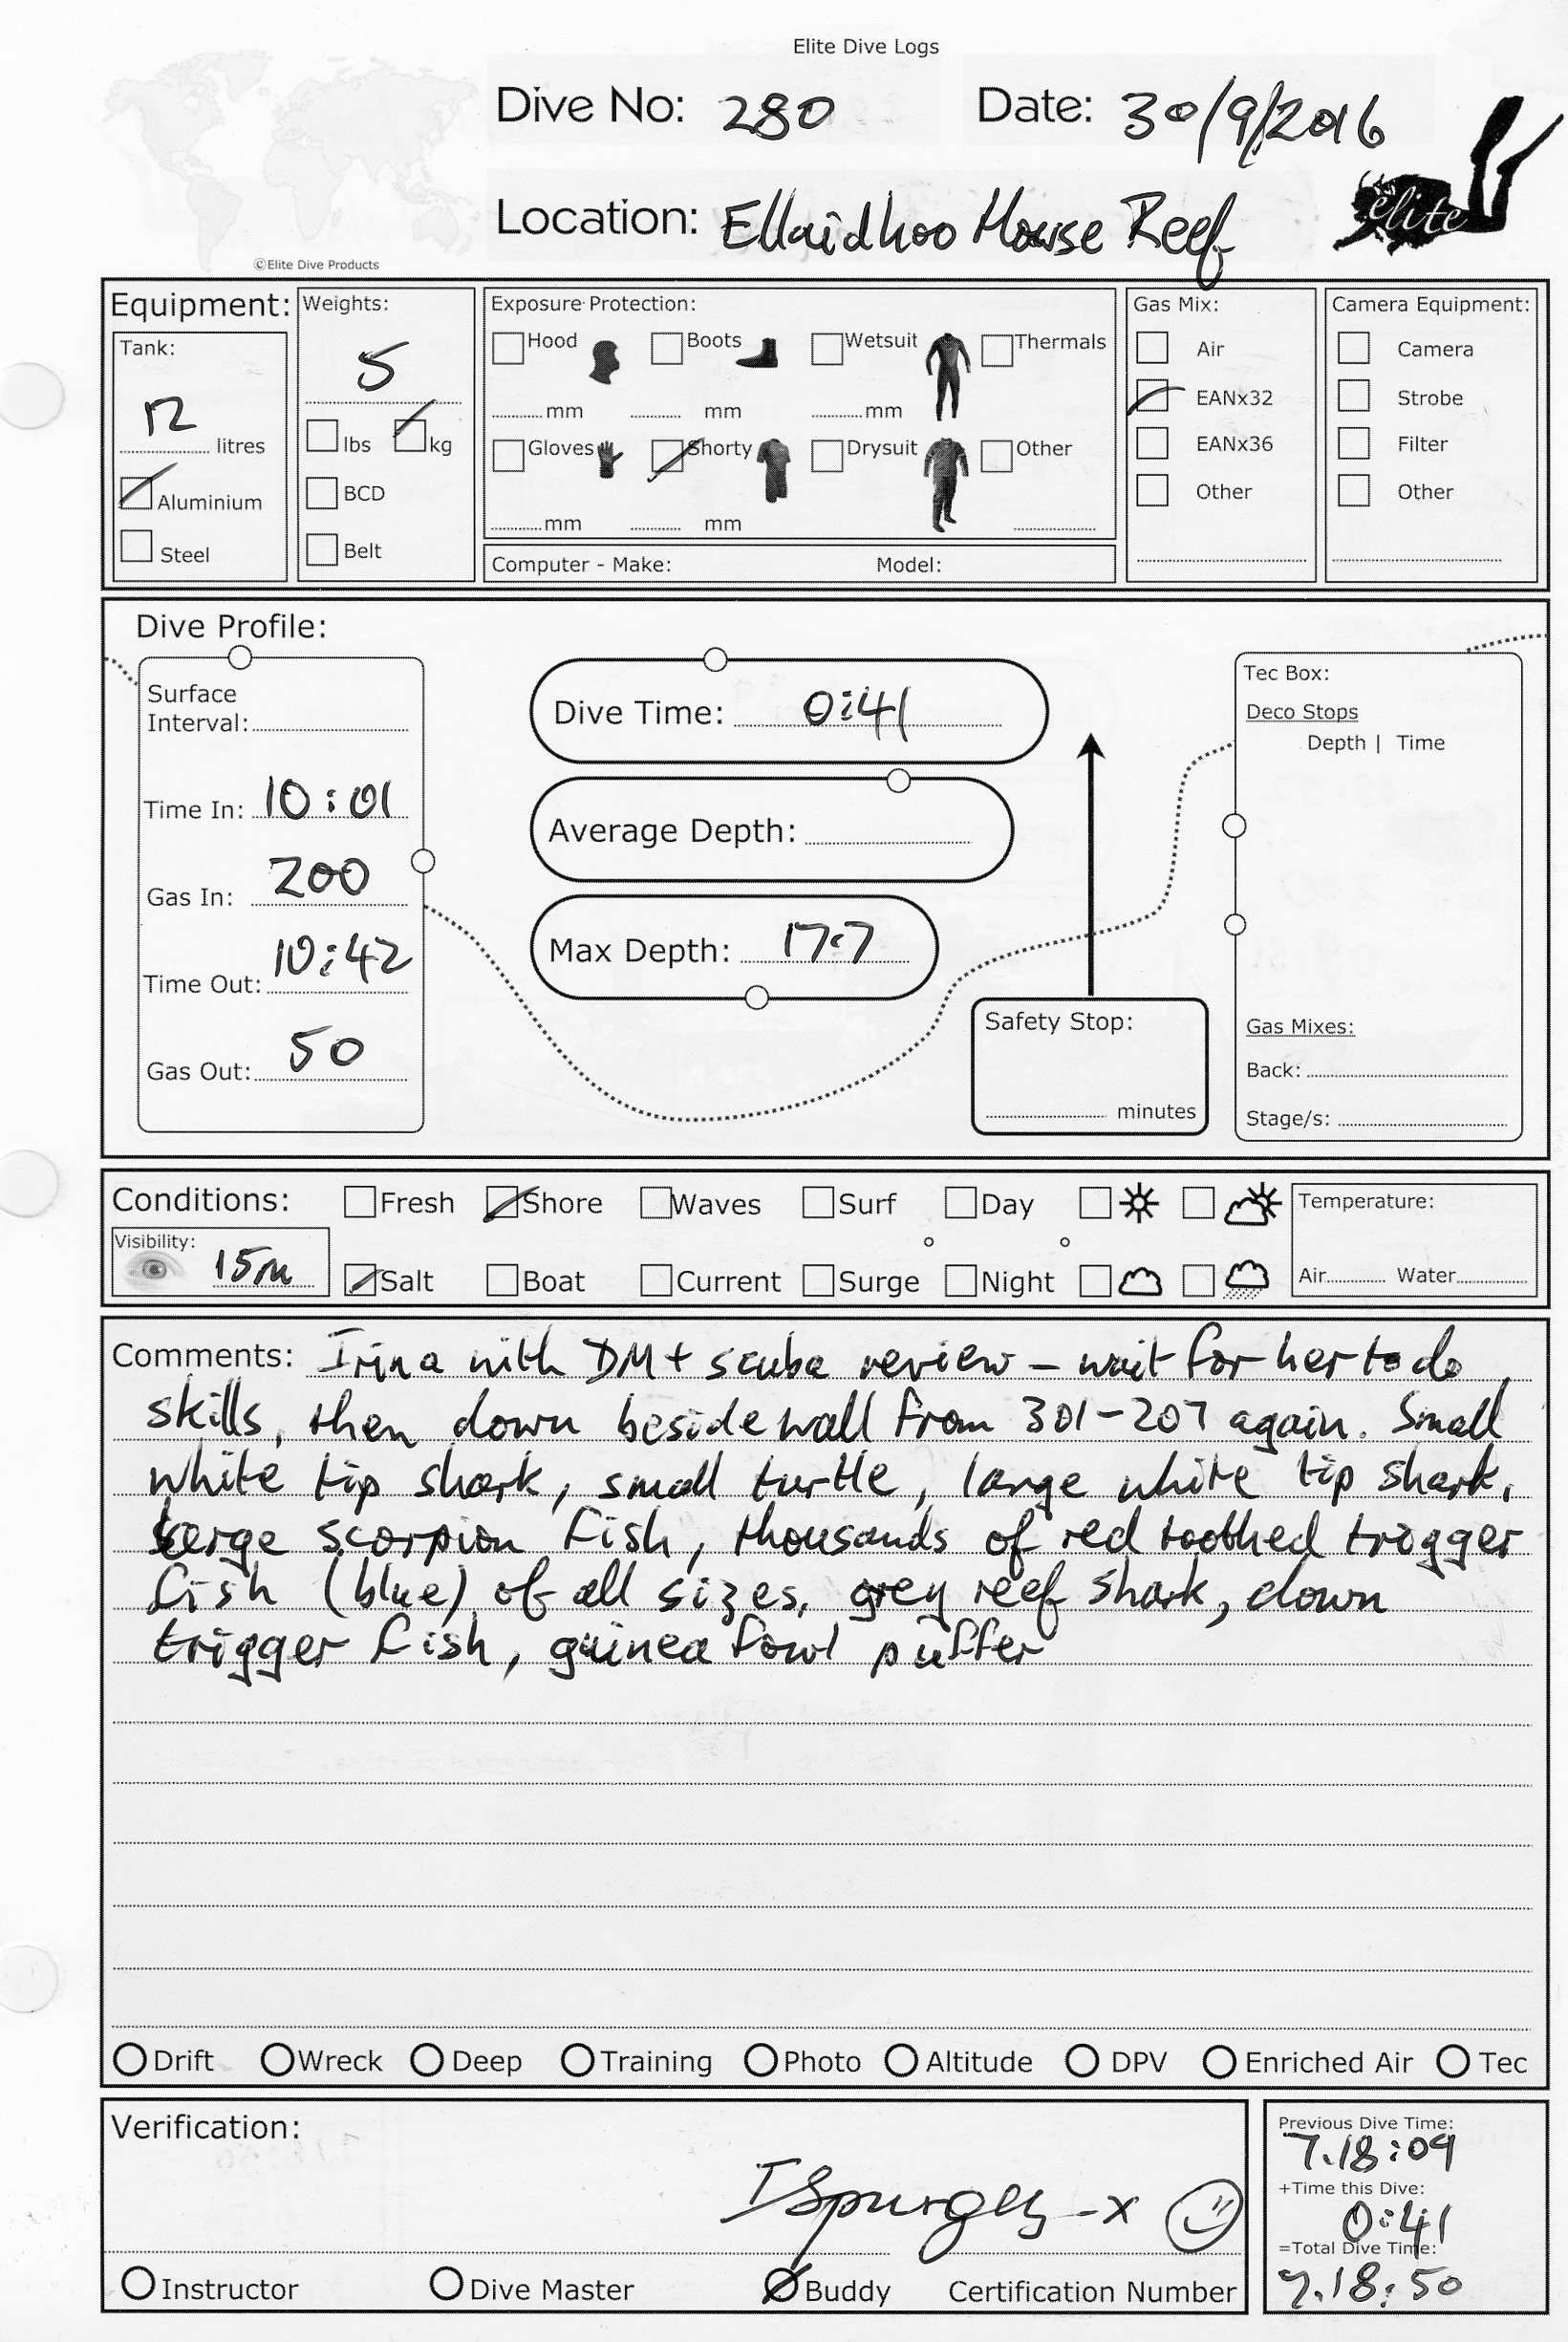 Elite Dive Logs
Dive No: 280 Date: 30/9/2016
Location: Ellaidhoo House Reef
elite
©Elite Dive Products
Equipment: Weights: Exposure Protection: Gas Mix: Camera Equipment:
Tank: 5 Hood Boots Wetsuit Thermals Air Camera
12 litres lbs kg mm mm mm EANx32 Strobe
Aluminium BCD Gloves Shorty Drysuit Other EANx36 Filter
Steel Belt mm mm Other Other
Computer - Make: Model:
Dive Profile:
Surface
Interval:
Time In: 10:01
Gas In: 200
Time Out: 10:42
Gas Out: 50
Dive Time: 0:41
Average Depth:
Max Depth: 17.7
Safety Stop:
minutes
Tec Box:
Deco Stops
Depth | Time
Gas Mixes:
Back:
Stage/s:
Conditions: Fresh Shore Waves Surf Day Temperature:
Visibility: 15m Salt Boat Current Surge Night Air Water
Comments: Irina with DM + scuba review - wait for her to do
skills, then down beside wall from 301-207 again. Small
white tip shark, small turtle, large white tip shark,
large scorpion fish, thousands of red toothed trigger
fish (blue) of all sizes, grey reef shark, clown
trigger fish, guinea fowl puffer
Drift Wreck Deep Training Photo Altitude DPV Enriched Air Tec
Verification:
ISpurgey -x
Instructor Dive Master Buddy Certification Number
Previous Dive Time:
7.18:09
+Time this Dive:
0:41
=Total Dive Time:
7.18:50